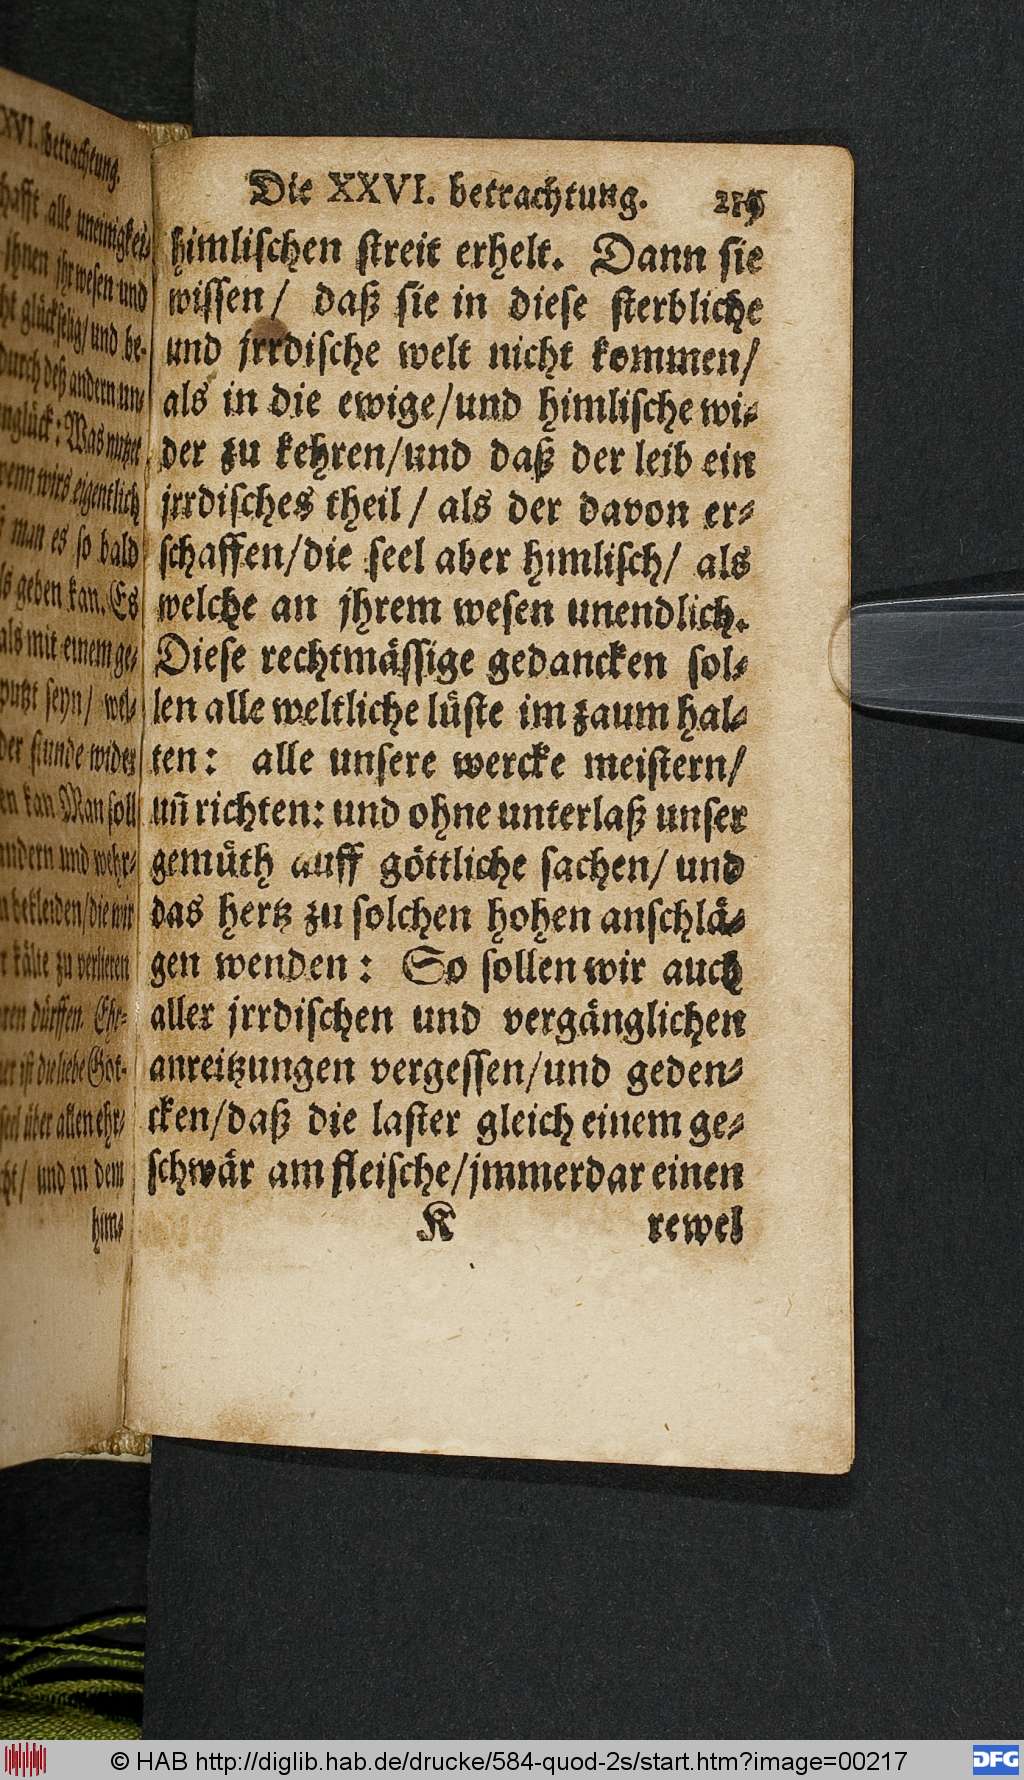 XVI. betrachtung.
hafft alle uneinigkei-
jhnen jhr wesen und
glückselig/und be-
durch deß andern un-
nglück: Was nutzet
wenn wirs eigentlich
man es so bald
als geben kan. Es
als mit einem ge-
putzt seyn/ wel-
der stunde wider
kan Man soll
andern und wehr-
bekleiden/die wir
kälte zu verlieren
dürffen. Ehr-
ist die liebe Got-
seel über allen ehr-
und in dem
him-
Die XXVI. betrachtung.
himlischen streit erhelt. Dann sie
wissen/ daß sie in diese sterbliche
und jrrdische welt nicht kommen/
als in die ewige/und himlische wi-
der zu kehren/und daß der leib ein
jrrdisches theil/ als der davon er-
schaffen/die seel aber himlisch/ als
welche an jhrem wesen unendlich.
Diese rechtmässige gedancken sol-
len alle weltliche lüste im zaum hal-
ten: alle unsere wercke meistern/
uñ richten: und ohne unterlaß unser
gemüth auff göttliche sachen/ und
das hertz zu solchen hohen anschlä-
gen wenden: So sollen wir auch
aller jrrdischen und vergänglichen
anreitzungen vergessen/und geden-
cken/daß die laster gleich einem ge-
schwär am fleische/jmmerdar einen
K rewel
© HAB http://diglib.hab.de/drucke/584-quod-2s/start.htm?image=00217
DFG